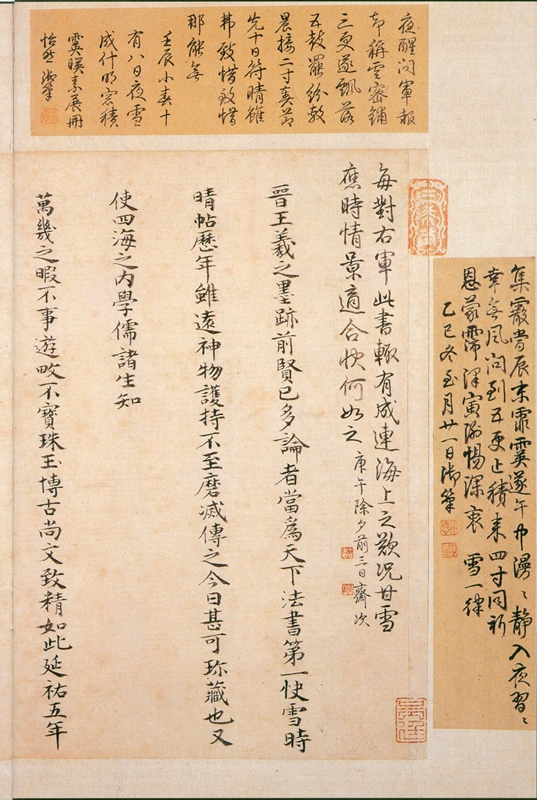 集霰當辰末霏霙遂午中漫〻靜入夜習〻
幸無風問到五更止積來四寸同新
恩蒙霈澤寅惕深衷 雪一律
乙巳冬至月廿一日御筆
每對右軍此書輒有成連海上之歎況甘雪
應時情景適合快何如之 庚午除夕前三日齋次
晉王羲之墨跡前賢已多論者當爲天下法書第一快雪時
晴帖歷年雖遠神物護持不至磨滅傳之今日甚可珎藏也又
使四海之內學儒諸生知
萬幾之暇不事遊畋不寶珠玉博古尚文致精如此延祐五年
夜醒問軍報
却稱雲密鋪
三更遂飄落
五鼓罷紛敷
晨接二寸奏節
先十日符晴雖
弗致惜致惜
那能無
壬辰小春十
有八日夜雪
成什明窓積
霙映素展冊
怡然御筆